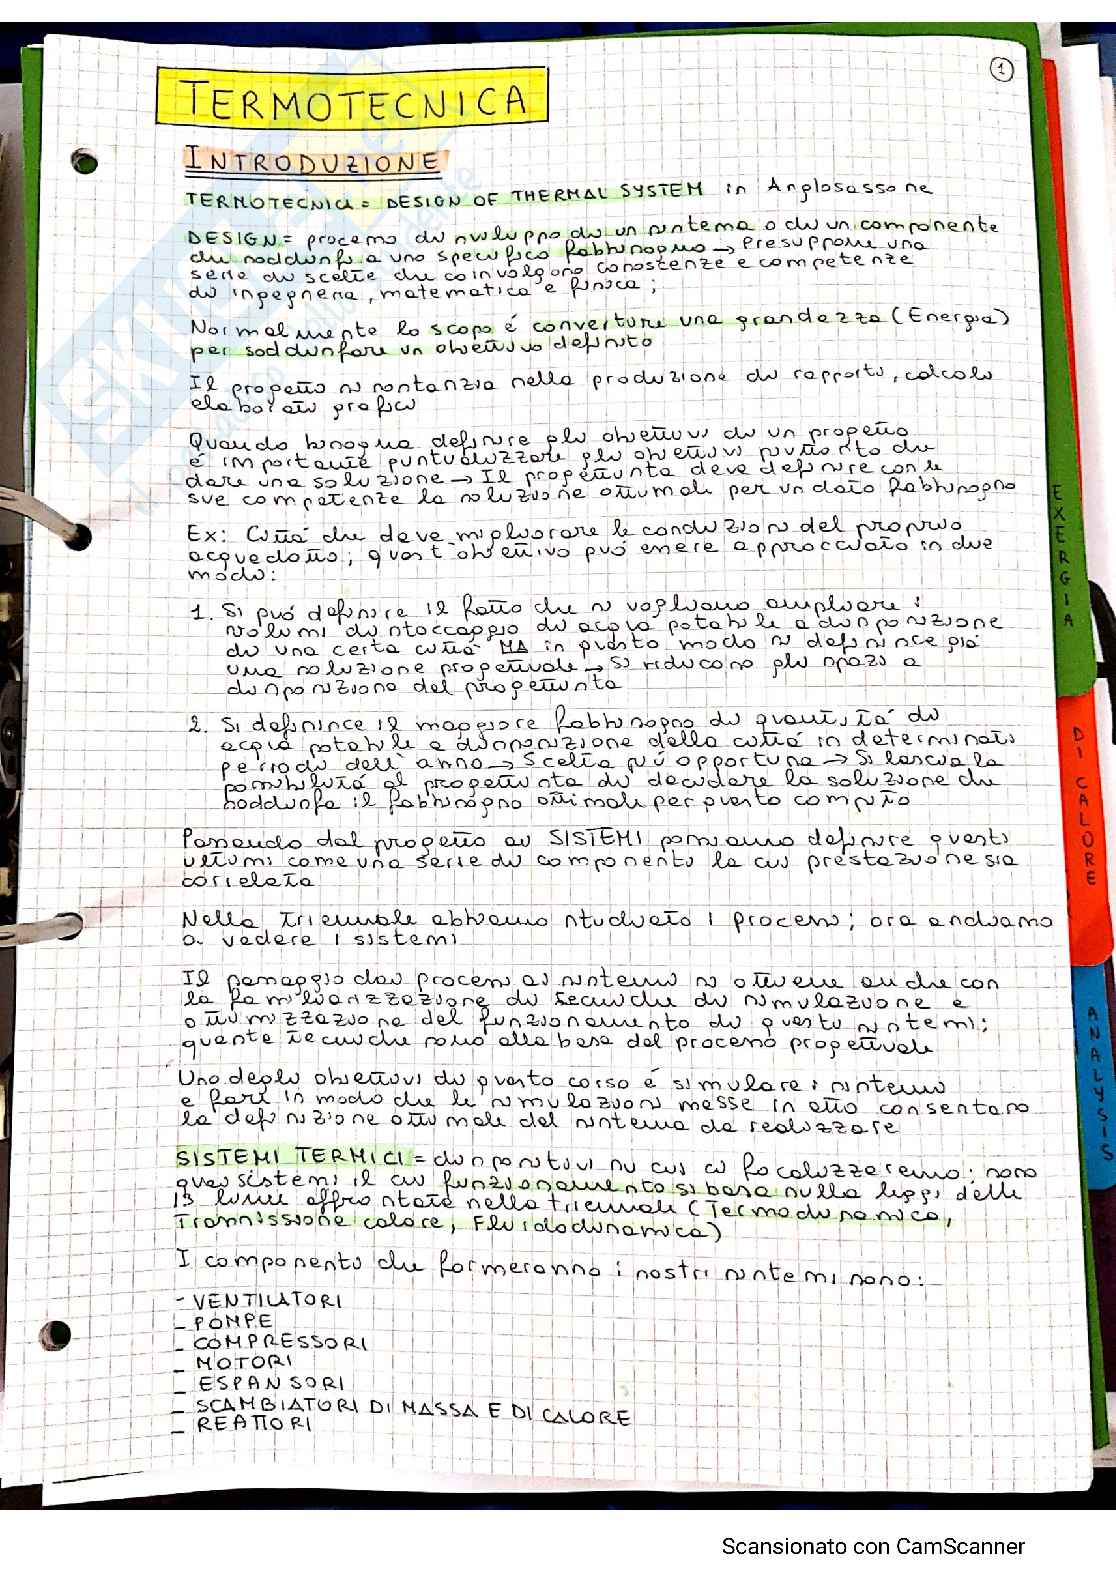 1
TERMOTECNICA
INTRODUZIONE
TERMOTECNICA = DESIGN OF THERMAL SYSTEM in Anglosassone
DESIGN = processo di sviluppo di un sistema o di un componente
che soddisfi a uno specifico fabbisogno → Presuppone una
serie di scelte che coinvolgono conoscenze e competenze
di ingegneria, matematica e fisica;
Normalmente lo scopo é convertire una grandezza (Energia)
per soddisfare un obiettivo definito
Il progetto si sostanzia nella produzione di rapporti, calcoli
elaborati grafici
Quando bisogna definire gli obiettivi di un progetto
é importante puntualizzare gli obiettivi piuttosto che
dare una soluzione → Il progettista deve definire con le
sue competenze la soluzione ottimale per un dato fabbisogno
Ex: Cittá che deve migliorare le condizioni del proprio
acquedotto; quest'obiettivo puó essere approcciato in due
modi:
1. Si puó definire il fatto che si vogliano ampliare i
volumi di stoccaggio di acqua potabile a disposizione
di una certa cittá MA in questo modo si definisce giá
una soluzione progettuale → Si riducono gli spazi a
disposizione del progettista
2. Si definisce il maggiore fabbisogno di quantitá di
acqua potabile a disposizione della cittá in determinati
periodi dell'anno → Scelta piú opportuna → Si lascia la
possibilitá al progettista di decidere la soluzione che
soddisfa il fabbisogno ottimale per questo compito
Passando dal progetto ai SISTEMI possiamo definire questi
ultimi come una serie di componenti la cui prestazione sia
correlata
Nella triennale abbiamo studiato i processi; ora andiamo
a vedere i sistemi
Il passaggio dai processi ai sistemi si ottiene anche con
la familiarizzazione di tecniche di simulazione e
ottimizzazione del funzionamento di questi sistemi;
queste tecniche sono alla base del processo progettuale
Uno degli obiettivi di questo corso é simulare i sistemi
e fare in modo che le simulazioni messe in atto consentano
la definizione ottimale del sistema da realizzare
SISTEMI TERMICI = dispositivi su cui ci focalizzeremo: sono
quei sistemi il cui funzionamento si basa sulla leggi delle
discipline affrontate nella triennale (Termodinamica,
Trasmissione calore, Fluidodinamica)
I componenti che formeranno i nostri sistemi sono:
- VENTILATORI
- POMPE
- COMPRESSORI
- MOTORI
- ESPANSORI
- SCAMBIATORI DI MASSA E DI CALORE
- REATTORI
EXERGIA
DI CALORE
ANALYSIS
Scansionato con CamScanner